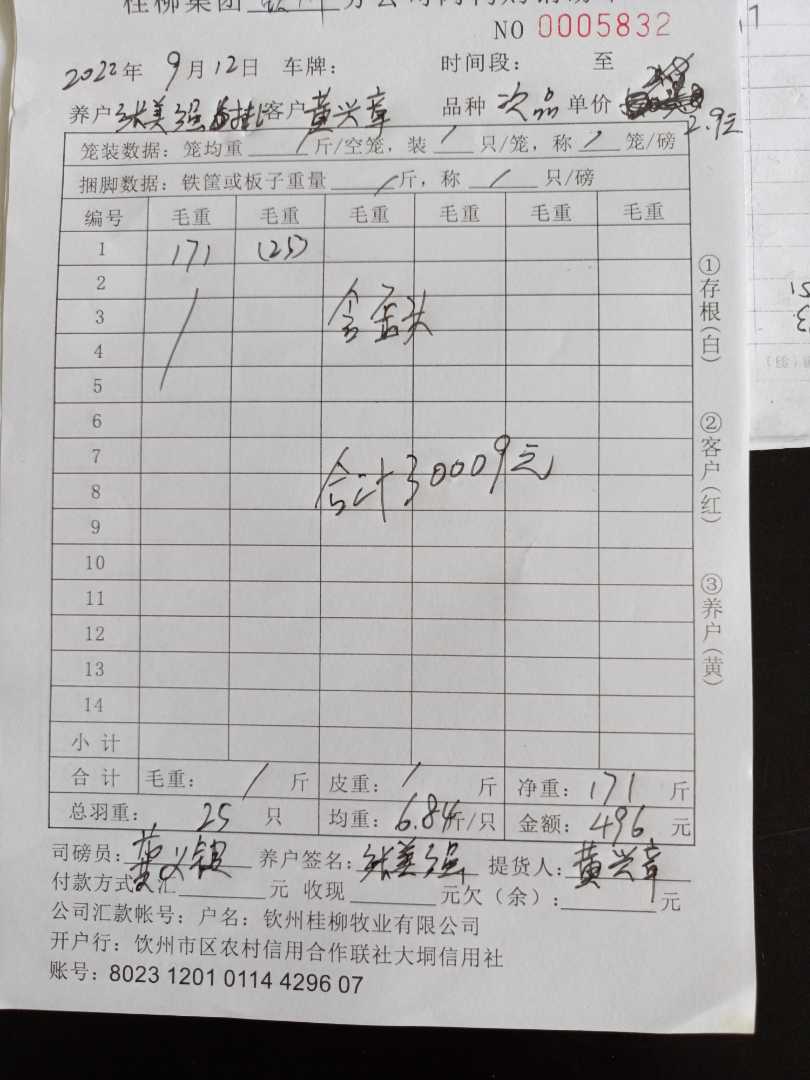 桂柳集团 钦州 分公司肉鸭购销磅单
NO 0005832
2022年 9月12日 车牌: 时间段: 至
养户 张美强 客户 黄兴章 品种 次品 单价 2.9元
笼装数据: 笼均重 / 斤/空笼, 装 / 只/笼, 称 / 笼/磅
捆脚数据: 铁筐或板子重量 / 斤, 称 / 只/磅
编号 毛重 毛重 毛重 毛重 毛重 毛重
1 171 (25)
2
3 含歪头
4
5
6
7
8 合计30009元
9
10
11
12
13
14
小计
合计 毛重: / 斤 皮重: / 斤 净重: 171 斤
总羽重: 25 只 均重: 6.84斤/只 金额: 496 元
司磅员: 养户签名: 张美强 提货人: 黄兴章
付款方式: 汇 元 收现 元欠(余): 元
公司汇款帐号: 户名: 钦州桂柳牧业有限公司
开户行: 钦州市区农村信用合作联社大垌信用社
账号: 8023 1201 0114 4296 07
①存根(白)
②客户(红)
③养户(黄)